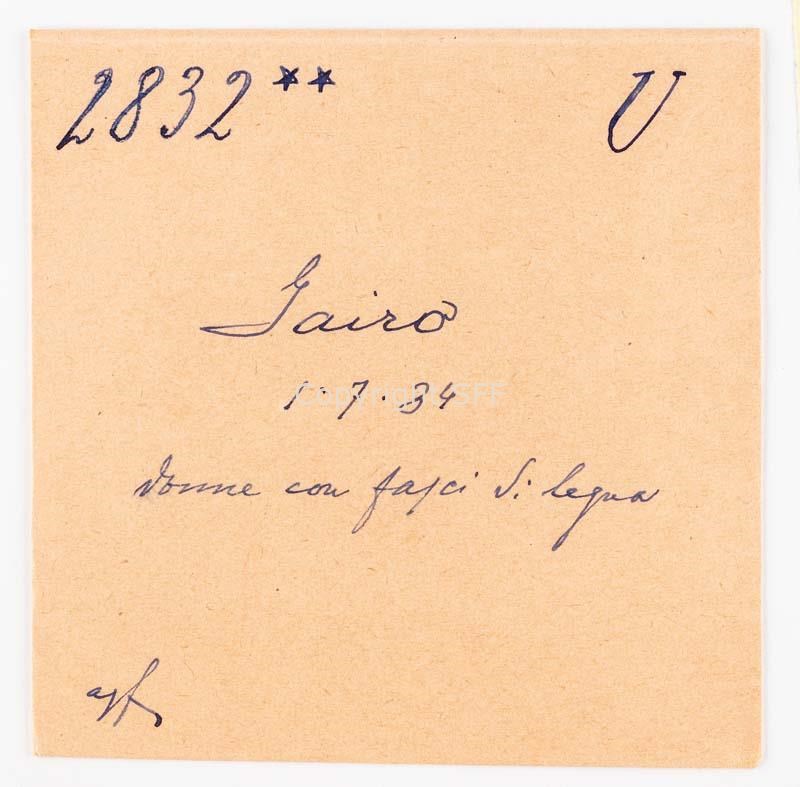 2832** U
Gairo
1·7·34
Copyright SFF
donne con fasci di legna